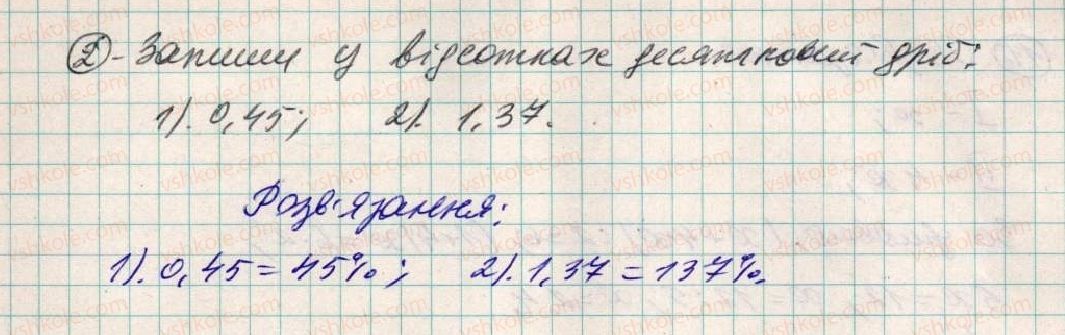 2 - Запиши у відсотках десятковий дріб:
1). 0,45; 2). 1,37.
Розв'язання:
1). 0,45 = 45%; 2). 1,37 = 137%.